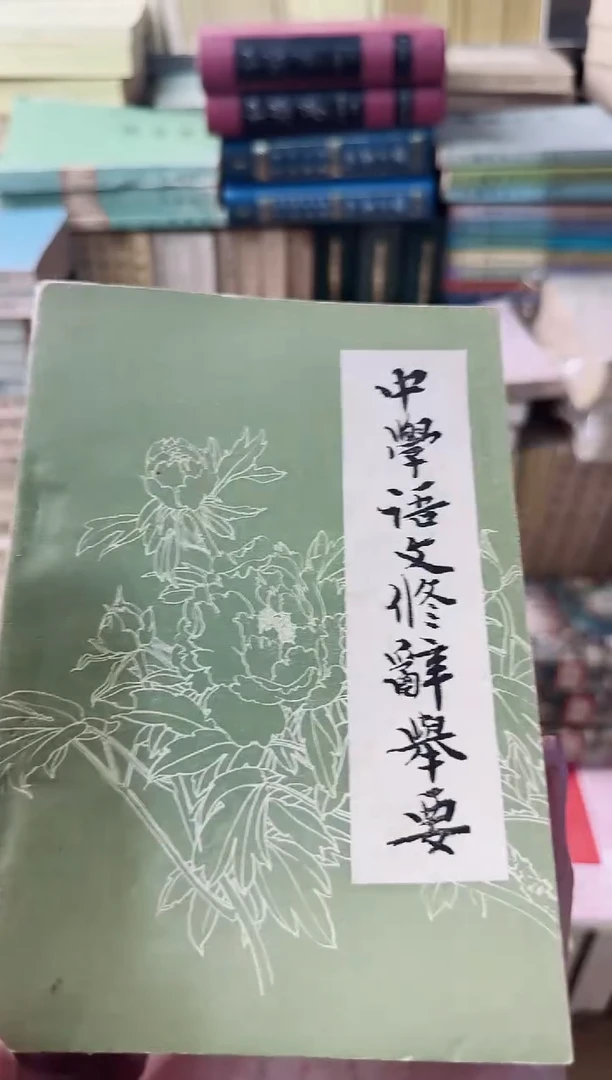 中學语文修辭舉要